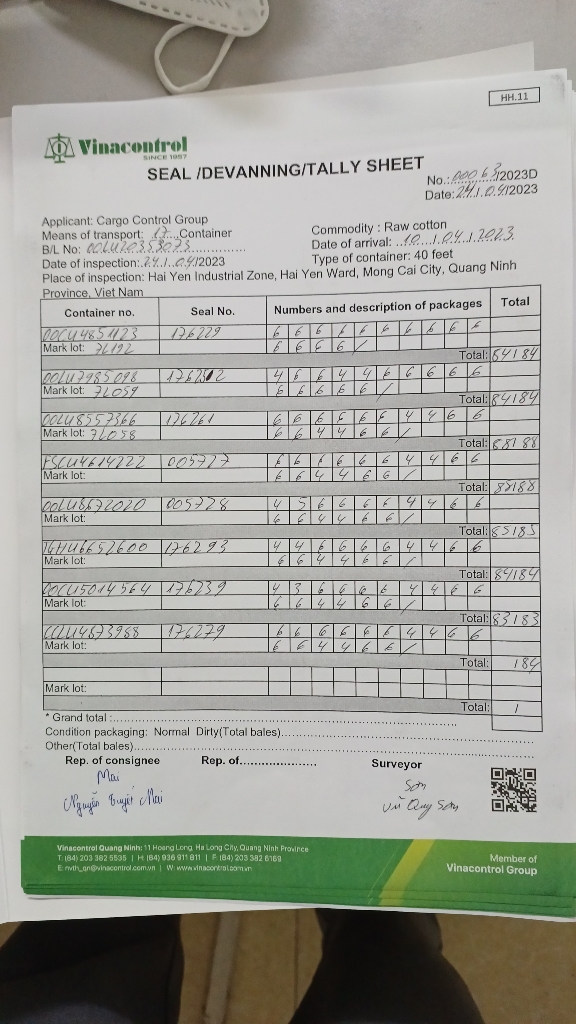 HH.11
Vinacontrol
SINCE 1957
SEAL /DEVANNING/TALLY SHEET
No.: 00063/2023D
Date: 24/04/2023
Applicant: Cargo Control Group
Means of transport: 17 Container
Commodity : Raw cotton
B/L No: OOLU2035
Date of arrival: 10/04/2023
Date of inspection: 24/04/2023
Type of container: 40 feet
Place of inspection: Hai Yen Industrial Zone, Hai Yen Ward, Mong Cai City, Quang Ninh
Province, Viet Nam
Container no. Seal No. Numbers and description of packages Total
OOCU4851123 176229 6 6 6 6 6 6 6 6 6 6
Mark lot: 7L192 6 6 6 6 /
Total: 84184
OOLU7985098 4 6 6 4 4 6 6 6 6 6
Mark lot: 7L059 6 6 6 6 6 /
Total: 84184
OOLU8557366 176261 6 6 6 6 6 6 4 4 6 6
Mark lot: 7L058 6 6 4 4 6 6 /
Total: 88188
FSCU4614222 005727 6 6 6 6 6 6 4 4 6 6
Mark lot: 6 6 4 4 6 6 /
Total: 88188
OOLU8672020 005728 4 5 6 6 6 6 4 4 6 6
Mark lot: 6 6 4 4 6 6 /
Total: 85185
TGHU6652600 176293 4 4 6 6 6 6 4 4 6 6
Mark lot: 6 6 4 4 6 6 /
Total: 84184
OOCU5014564 176239 4 3 6 6 6 6 4 4 6 6
Mark lot: 6 6 4 4 6 6 /
Total: 83183
176279 6 6 6 6 6 6 4 4 6 6
Mark lot: 6 6 4 4 6 6 /
Total: 184
Mark lot:
Total: /
* Grand total :
Condition packaging: Normal Dirty(Total bales)
Other(Total bales)
Rep. of consignee Rep. of Surveyor
Mai Sơn
Nguyễn Tuyết Mai Vũ Quy Sơn
Vinacontrol Quang Ninh: 11 Hoang Long, Ha Long City, Quang Ninh Province
T: (84) 203 382 5535 | H: (84) 936 911 811 | F: (84) 203 382 6169
E: nvth_qn@vinacontrol.com.vn | W: www.vinacontrol.com.vn
Member of
Vinacontrol Group